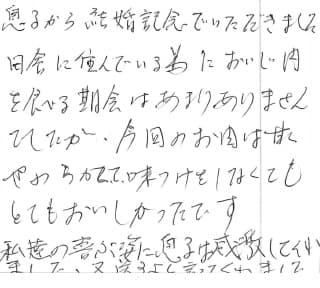 息子から結婚記念でいただきました
田舎に住んでいる為においしい肉
を食べる機会はあまりありません
でしたが、今回のお肉は甘く
やわらかくて、味つけをしなくても
とてもおいしかったです
私達の喜ぶ姿に息子は感激してくれ
ました、又送ると言ってくれました